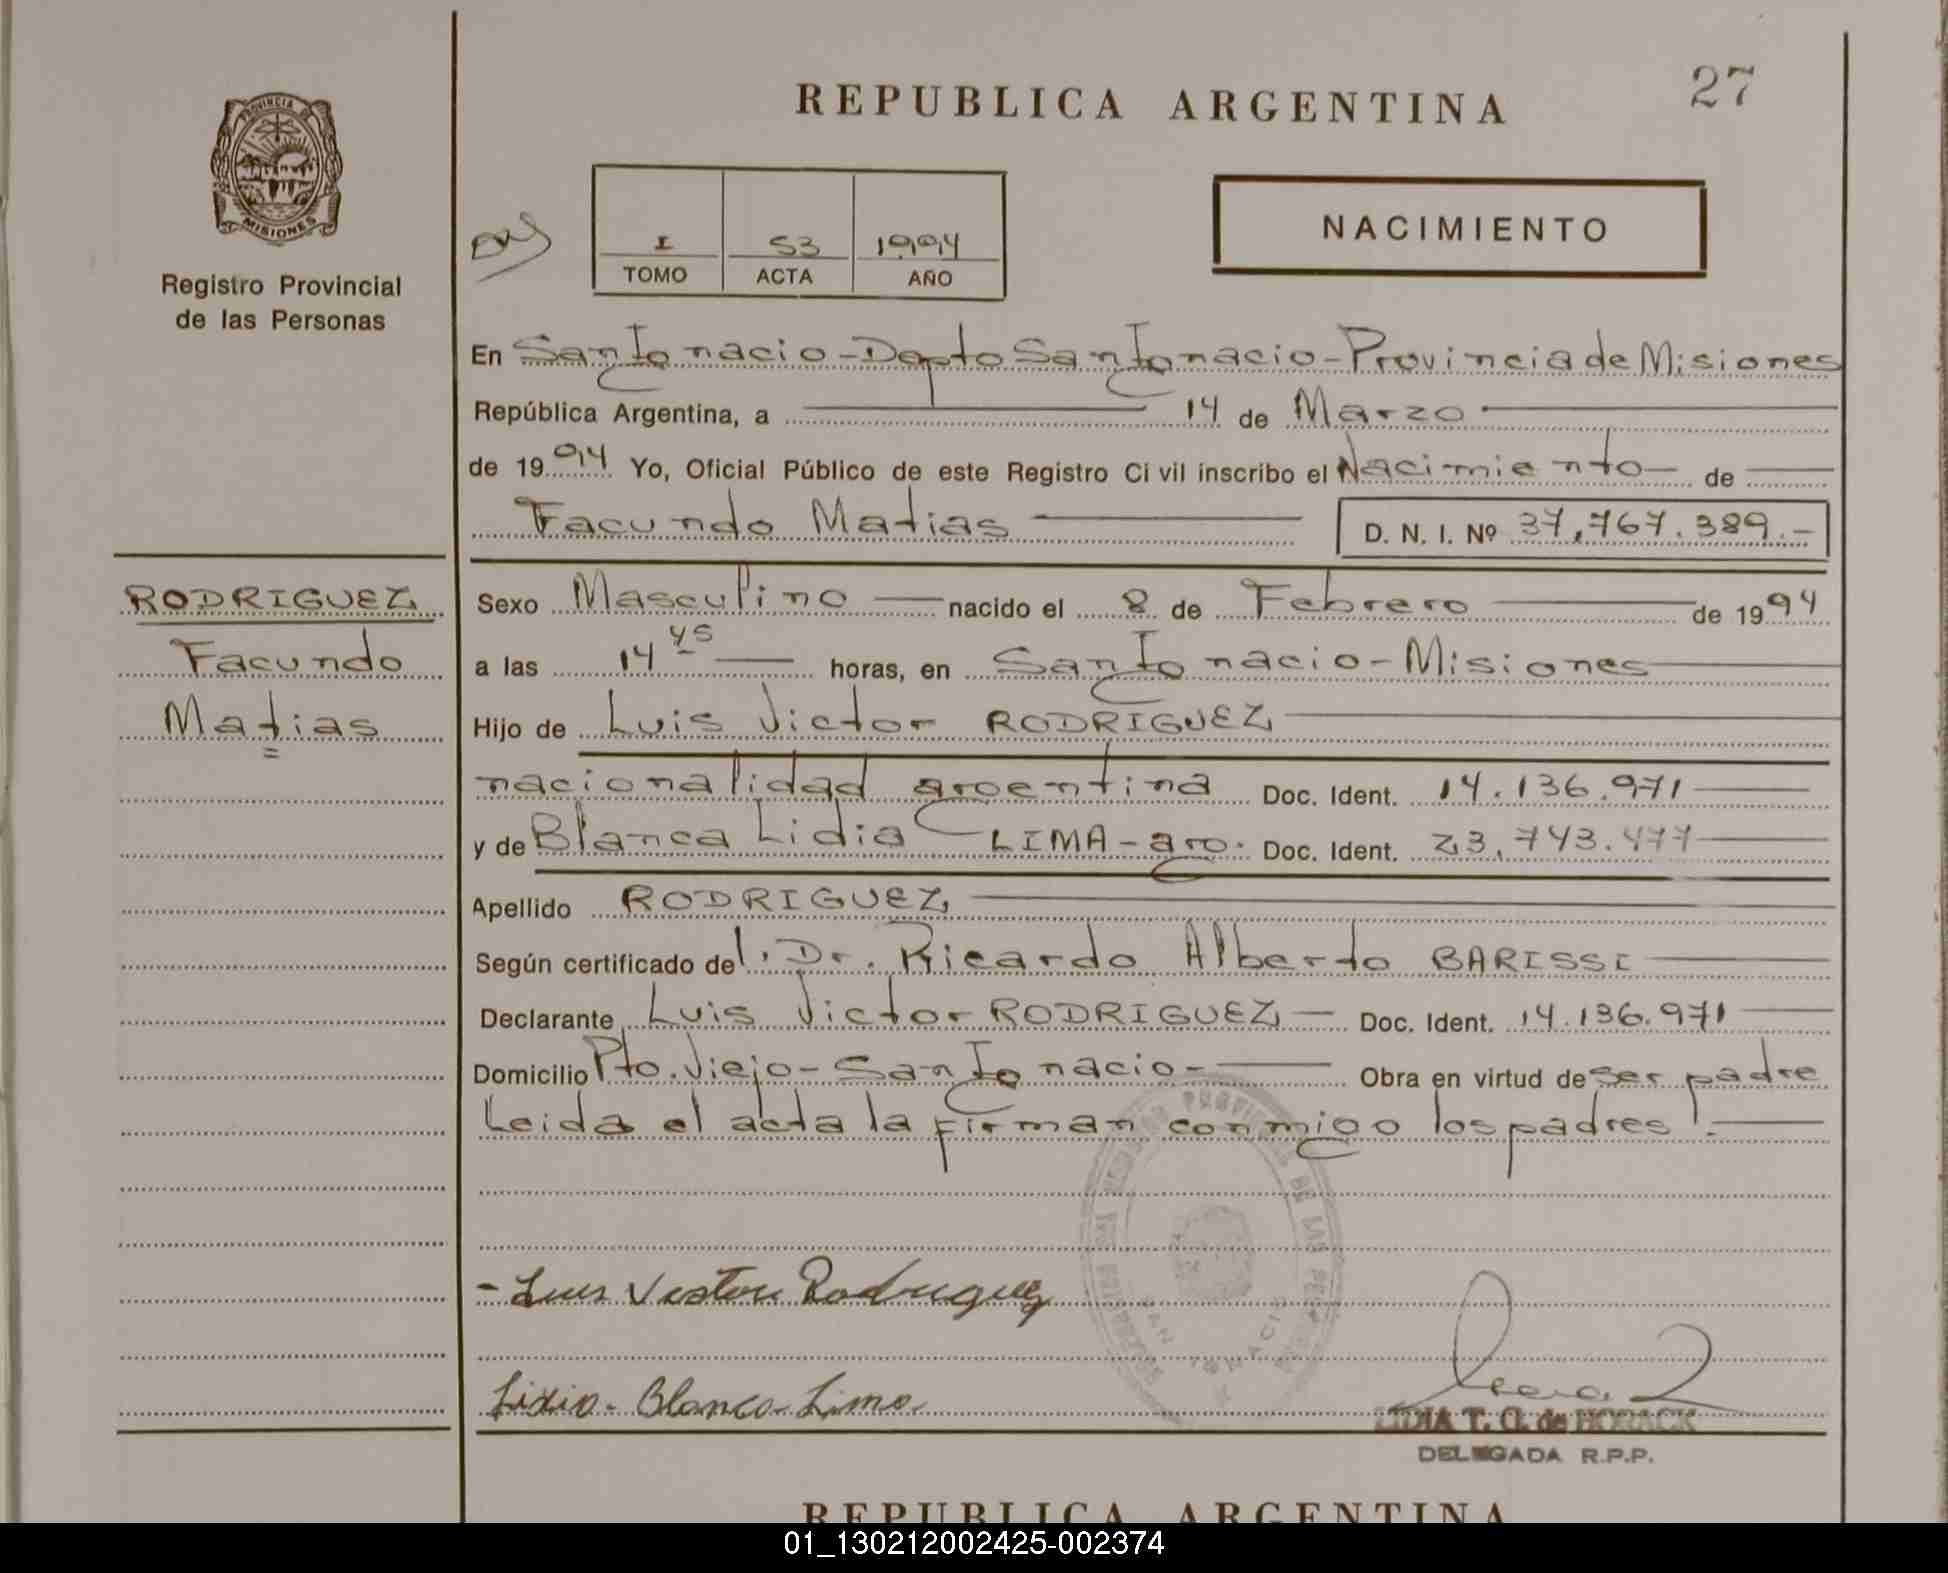 REPUBLICA ARGENTINA
27
PROVINCIA DE
MISIONES
Registro Provincial
de las Personas
I 53 1994
TOMO ACTA AÑO
NACIMIENTO
En San Ignacio - Depto San Ignacio - Provincia de Misiones
República Argentina, a 14 de Marzo
de 1994 Yo, Oficial Público de este Registro Civil inscribo el Nacimiento de
Facundo Matias D. N. I. Nº 37,767.389.-
RODRIGUEZ
Facundo
Matias
Sexo Masculino nacido el 8 de Febrero de 1994
a las 14 45 horas, en San Ignacio - Misiones
Hijo de Luis Victor RODRIGUEZ
nacionalidad argentina Doc. Ident. 14.136.971
y de Blanca Lidia LIMA - arg. Doc. Ident. 23,743.477
Apellido RODRIGUEZ
Según certificado del. Dr. Ricardo Alberto BARISSI
Declarante Luis Victor RODRIGUEZ - Doc. Ident. 14.136.971
Domicilio Pto. Viejo - San Ignacio - Obra en virtud de ser padre
Leida el acta la firman conmigo los padres!.-
- Luis Victor Rodriguez
Lidia - Blanca - Lima
LIDIA T. G. de HORACK
DELEGADA R.P.P.
REPUBLICA ARGENTINA
01_130212002425-002374